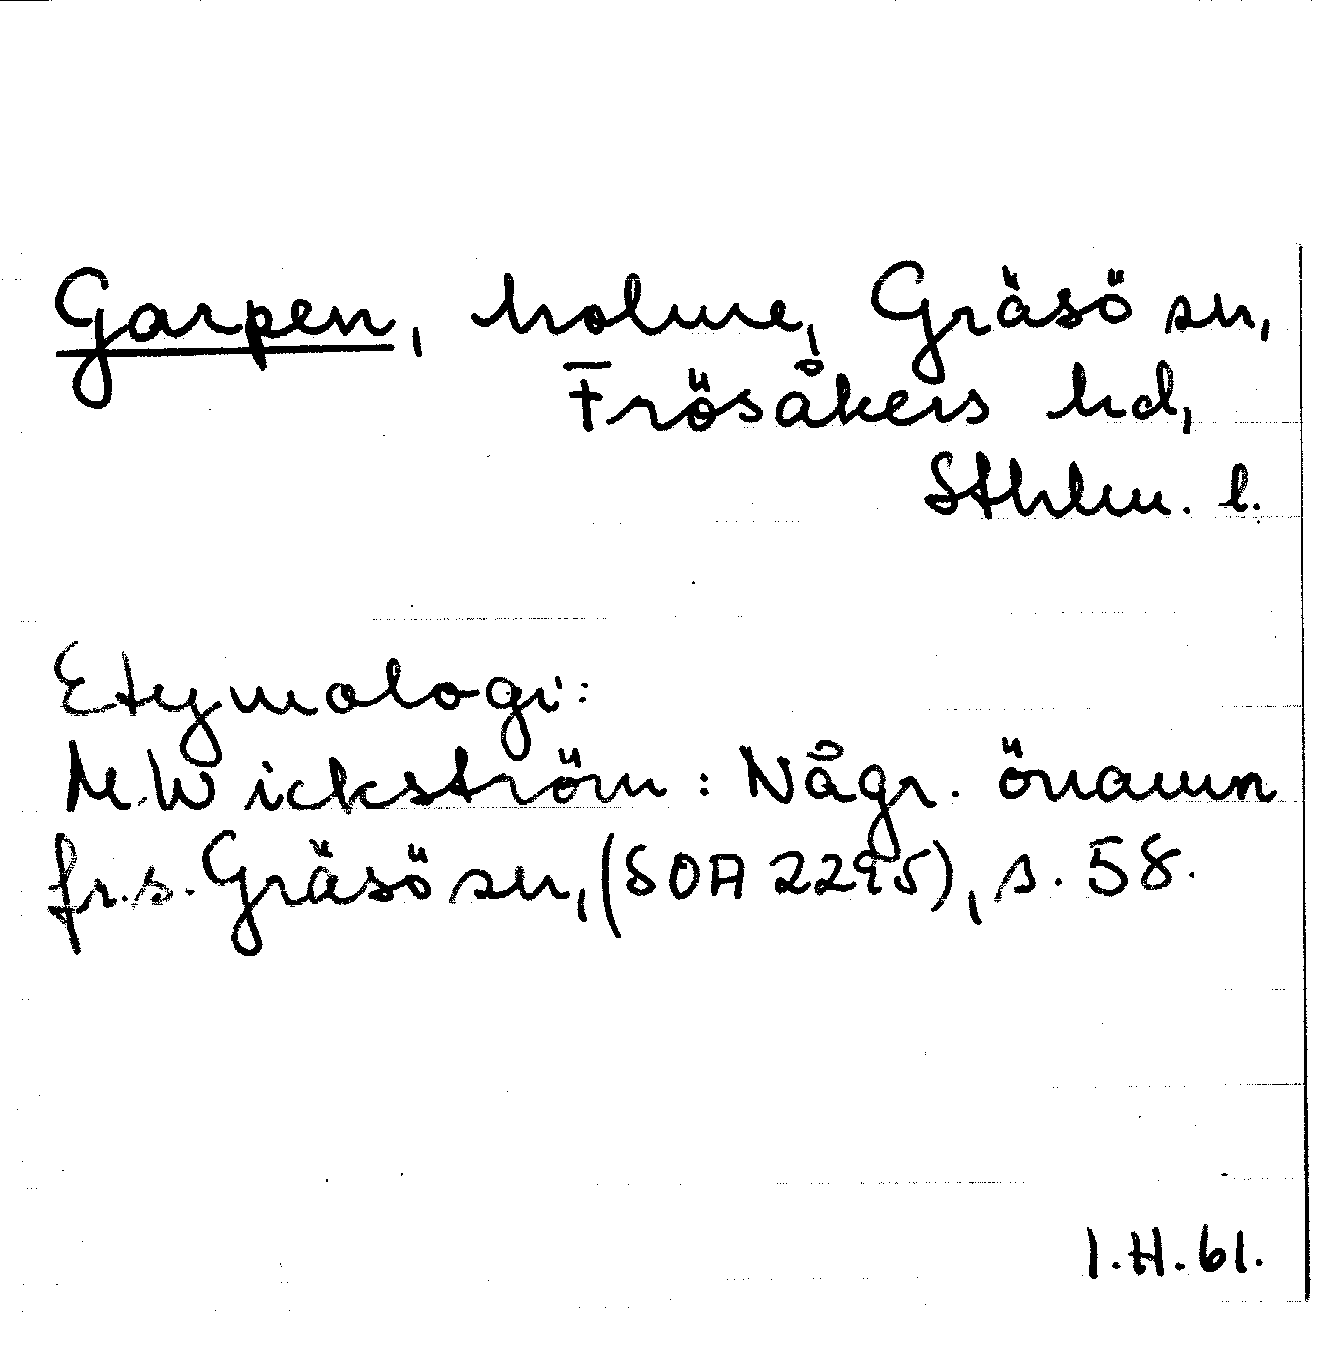 Garpen, holme, Gräsö sn,
Frösåkers hd,
Sthlm. l.
Etymologi:
M. Wickström: Någr. önamn
fr. s. Gräsö sn, (SOA 2295), s. 58.
I.H.61.